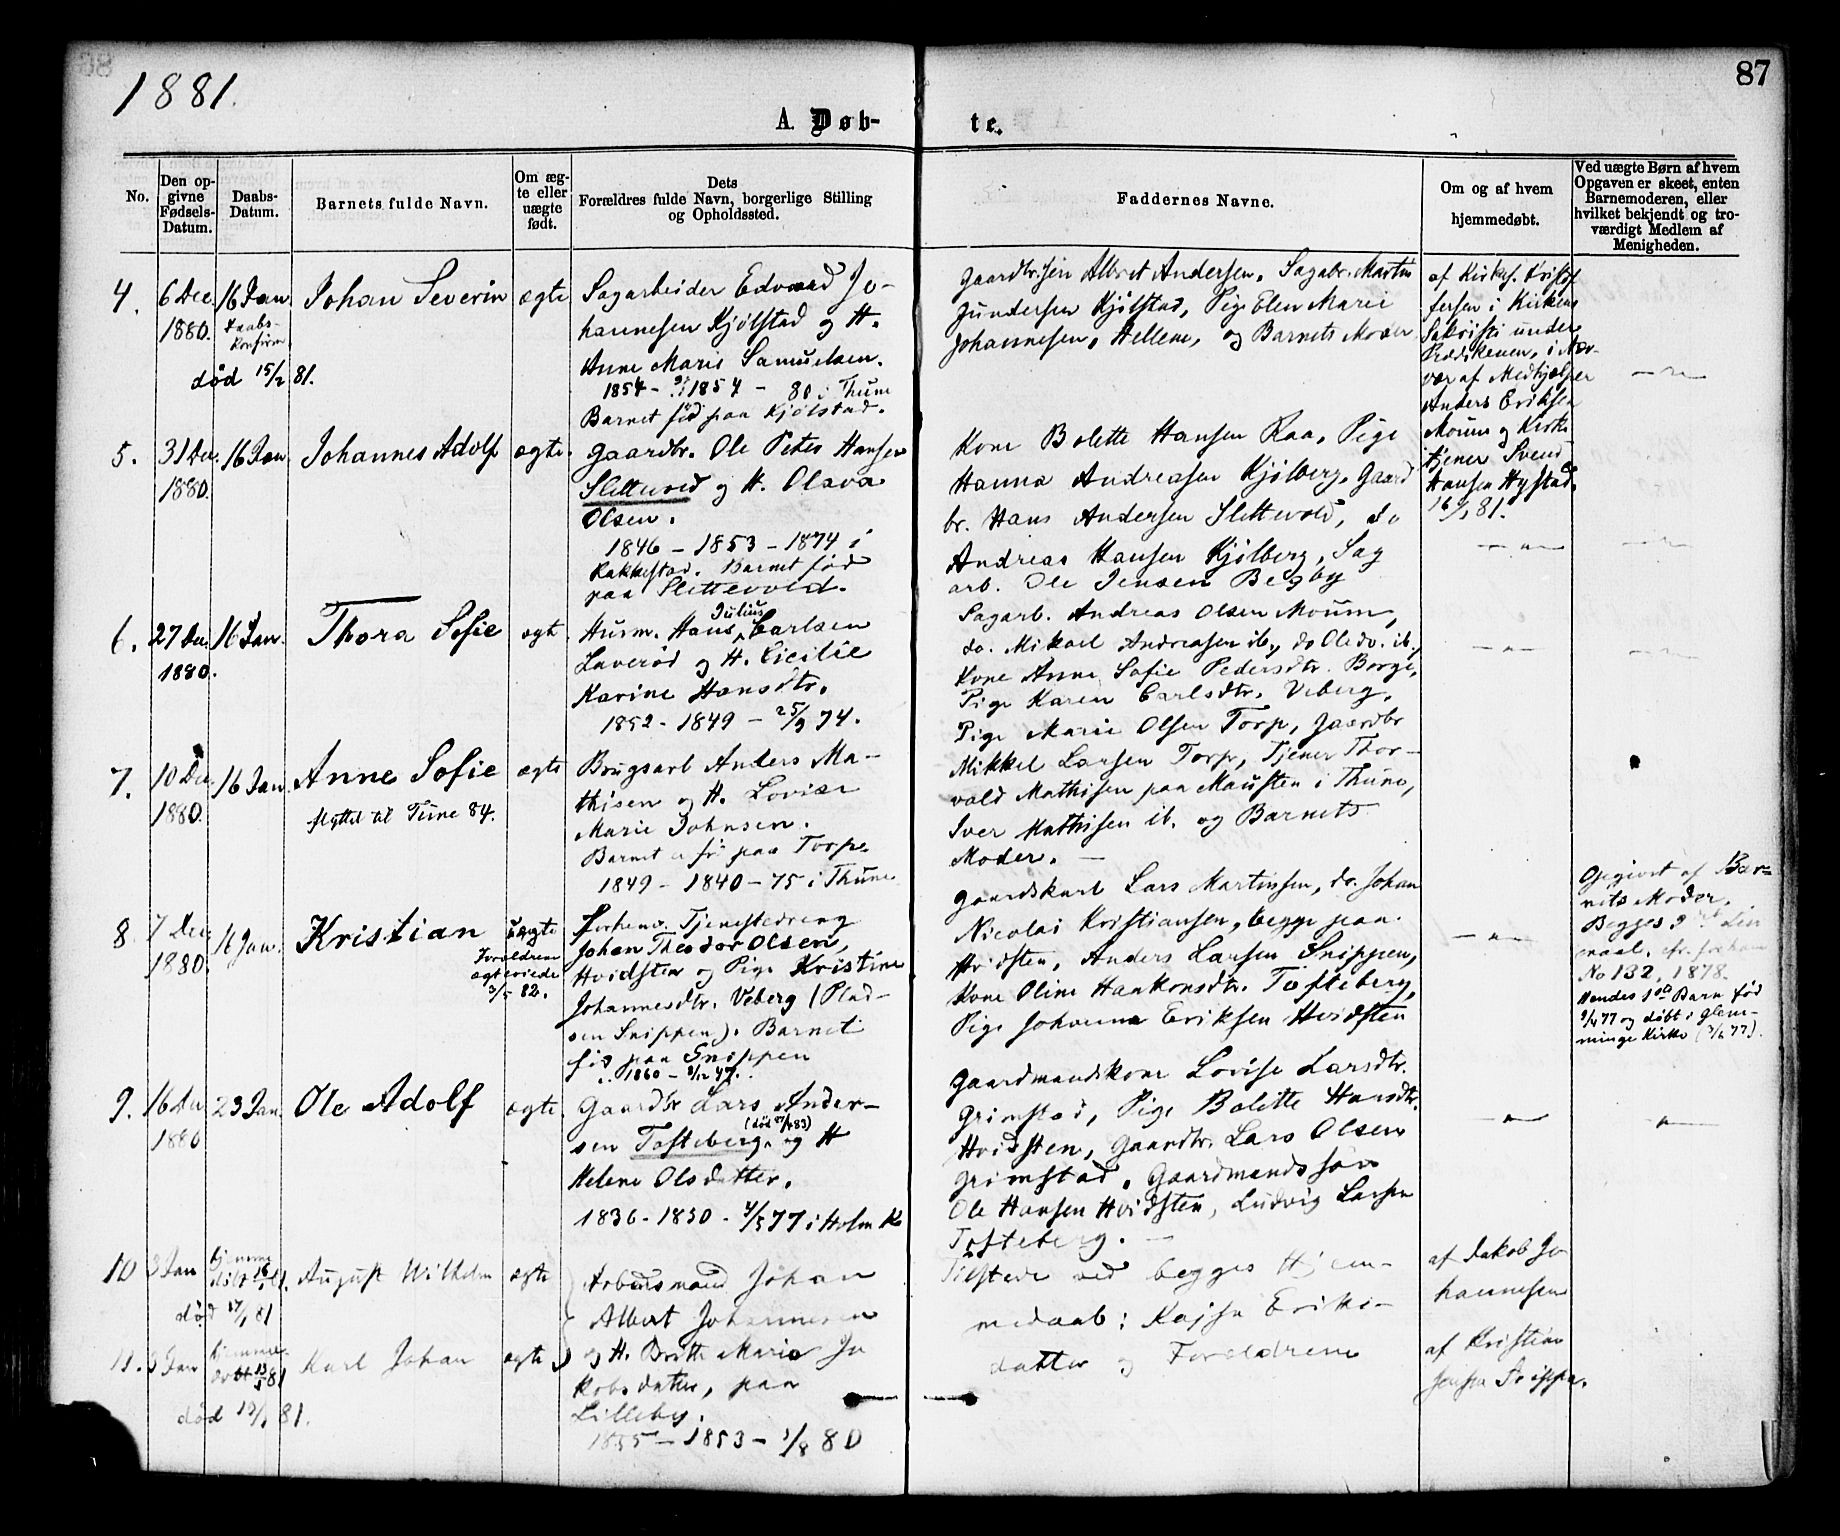 1881.
87
A. Døb-
te.
No.
Den op-
givne
Fødsels-
Datum.
Daabs-
Datum.
Barnets fulde Navn.
Om æg-
te eller
uægte
født.
Dets
Forældres fulde Navn, borgerlige Stilling
og Opholdssted.
Faddernes Navne.
Om og af hvem
hjemmedøbt.
Ved uægte Børn af hvem
Opgaven er skeet, enten
Barnemoderen, eller
hvilket bekjendt og tro-
værdigt Medlem af
Menigheden.
4.
6 Dec.
1880.
16 Jan.
Daabs-
Konfirm.
død 15/2 81.
Johan Severin
ægte
Sagarbeider Edvard Jo-
hannesen Kjølstad og H.
Anne Marie Samuelsen.
1854 - 1854 - 80 i Thune
Barnet fød paa Kjølstad.
Gaardbr.søn Albret Andersen, Sagabr. Martin
Gundersen Kjølstad, Pige Elen Marie
Johannesen, Hellene, og Barnets Moder
af Kirkes. Kristof
fersen i Kirkens
Sakristi under
Prædikenen, i Nær-
vær af Medhjælper
Anders Eriksen
Moum og Kirke
tjener Svend
Hansen Hystad.
16/1 81.
5.
31 Dec.
1880.
16 Jan.
Johannes Adolf
ægte.
Gaardbr. Ole Peter Hansen
Slettevold og H. Olava
Olsen.
1846 - 1853 - 1874 i
Rakkestad. Barnet fød
paa Slettevold.
Kone Bolette Hansen Raa, Pige
Hanna Andreasen Kjølberg, Gaard
br. Hans Andersen Slettevold, do
Andreas Hansen Kjølberg, Sag
arb. Ole Jensen Begby
6.
27 Dec.
1880.
16 Jan.
Thora Sofie
ægte
Husm. Hans Julius Carlsen
Laverød og H. Cicilie
Karine Hansdtr.
1852 - 1849 - 25/9 74.
Sagarb. Andreas Olsen Moum,
do. Mikael Andreasen ib., do Ole do. ib.,
Kone Anne Sofie Pedersdtr. Borge,
Pige Karen Carlsdtr. Veberg,
7.
10 Dec
1880.
16 Jan.
Anne Sofie
flyttet til Tune 84.
ægte
Brugsarb Anders Ma-
thisen og H. Lovise
Marie Johnsen.
Barnet er fø paa Torp.
1849 - 1840 - 75 i Thune
Pige Marie Olsen Torp, Gaardbr
Mikkel Larsen Torp, Tjener Thor-
vald Mathisen paa Mausten i Thune,
Iver Mathisen ib. og Barnets
Moder. —
8.
7 Dec.
1880.
16 Jan.
Kristian
uægte
Forældrene
ægteviede
3/5 82.
Forhenv. Tjenestedreng
Johan Theodor Olsen,
Hvidsten og Pige Kristine
Johannesdtr. Veberg (Plad-
sen Snippen). Barnet
fød paa Snippen
1860 - 8/12 47.
Gaardskarl Lars Martinsen, do. Johan
Nicolai Kristiansen, begge paa
Hvidsten, Anders Larsen Snippen,
Kone Oline Haakonsdtr. Tofteberg,
Pige Johanne Eriksen Hvidsten
Opgivet af Bar-
nets Moder.
Begges
maal.
No 132, 1878.
Hendes 1ste Barn fød
9/4 77 og døbt i Glem-
minge Kirke (3/6 77).
9.
16 Dec
1880
23 Jan.
Ole Adolf
ægte.
Gaardbr Lars Ander-
sen Tofteberg, og H
Helene Olsdatter.
1836 - 1850 - 4/5 77 i Holm K
Gaardmandskone Lovise Larsdtr.
Grimstad, Pige Bolitte Hansdtr.
Hvidsten, Gaardbr. Lars Olsen
Grimstad, Gaardmandssøn
Ole Hansen Hvidsten, Ludvig Larsen
Tofteberg. —
10
3 Jan
hjemme
døbt
død 17/1 81
August Wilhelm
ægte
Arbeidsmand Johan
Albert Johannesen
og H. Britte Marie Ja
kobsdatter, paa
Lilleby.
1855 - 1853 - 1/8 80
Tilstede ved begges Hjem-
medaab: Kajsa Eriks-
datter og Forældrene
af Jakob Jo
hannesen
11.
3 Jan
hjemme-
døbt 13/1 81
død 13/1 81.
Karl Johan
ægte
af Kristian